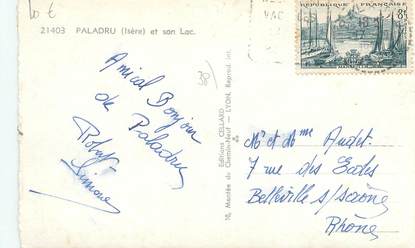 10 €
21403 PALADRU (Isère) et son Lac.
Amical Bonjour
de Paladru
Simone
Editions CELLARD
10, Montée du Chemin-Neuf — LYON, Reprod. int.
RÉPUBLIQUE FRANÇAISE
8f
Mr et Mme Audet.
7 rue des Ecoles
Belleville s/saône
Rhône